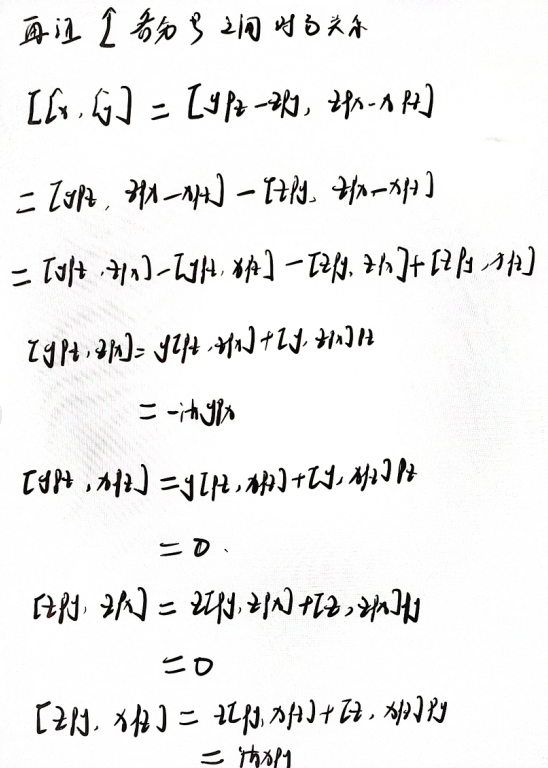 再证 L̂ 各分量之间对易关系
[L̂x, L̂y] = [ypz - zpy, zpx - xpz]
= [ypz, zpx - xpz] - [zpy, zpx - xpz]
= [ypz, zpx] - [ypz, xpz] - [zpy, zpx] + [zpy, xpz]
[ypz, zpx] = y[pz, zpx] + [y, zpx]pz
= -iħypx
[ypz, xpz] = y[pz, xpz] + [y, xpz]pz
= 0.
[zpy, zpx] = z[py, zpx] + [z, zpx]py
= 0
[zpy, xpz] = z[py, xpz] + [z, xpz]py
= iħxpy